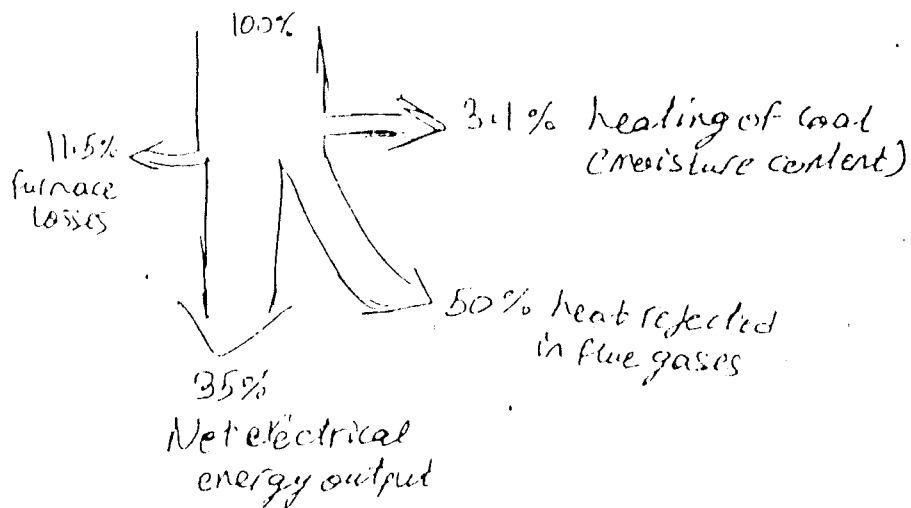 100%
3.1% heating of coal
(moisture content)
11.5%
furnace
losses
50% heat rejected
in flue gases
35%
Net electrical
energy output